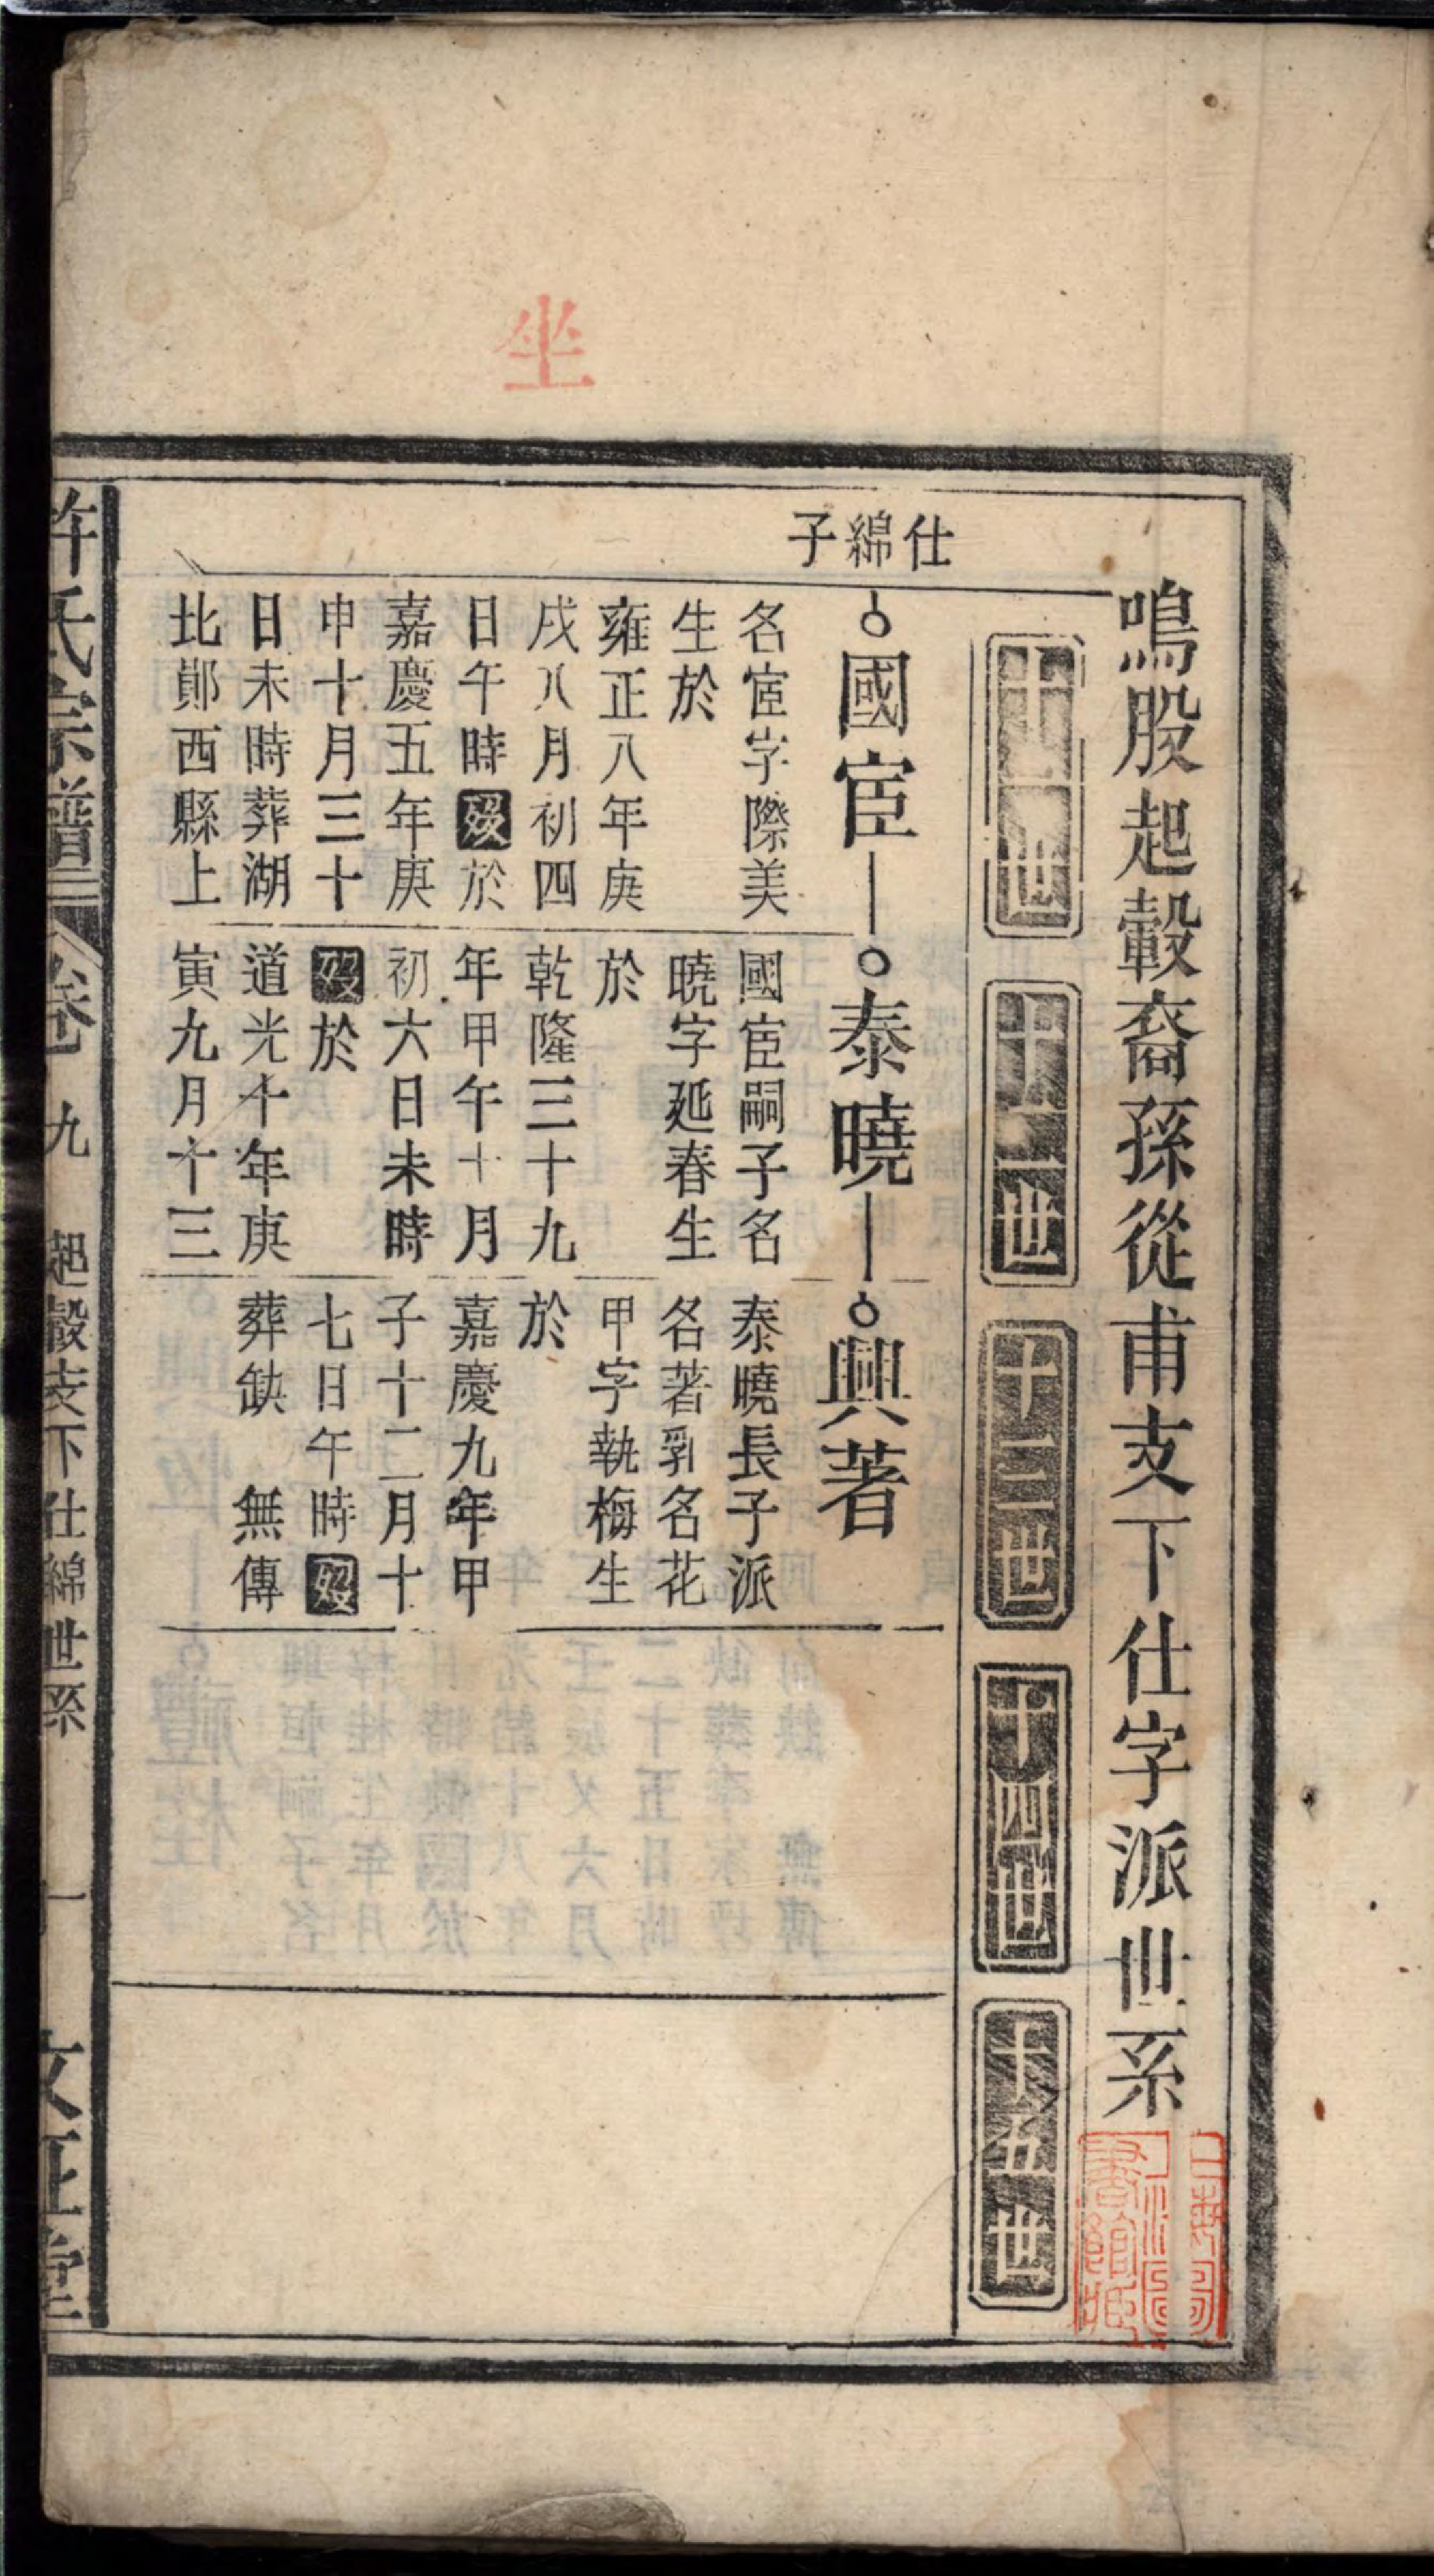 坐
鳴股起轂裔孫從甫支下仕字派世系
十一世
十二世
十三世
十四世
十五世
仕綿子
國宦
名宦字際美
生於
雍正八年庚
戌八月初四
日午時歿於
嘉慶五年庚
申十月三十
日未時葬湖
北鄖西縣上
泰曉
國宦嗣子名
曉字延春生
於
乾隆三十九
年甲午十月
初六日未時
歿於
道光十年庚
寅九月十三
興著
泰曉長子派
名著乳名花
甲字執梅生
於
嘉慶九年甲
子十二月十
七日午時歿
葬缺 無傳
許氏宗譜 卷九 起轂支下仕綿世系 一 文正堂